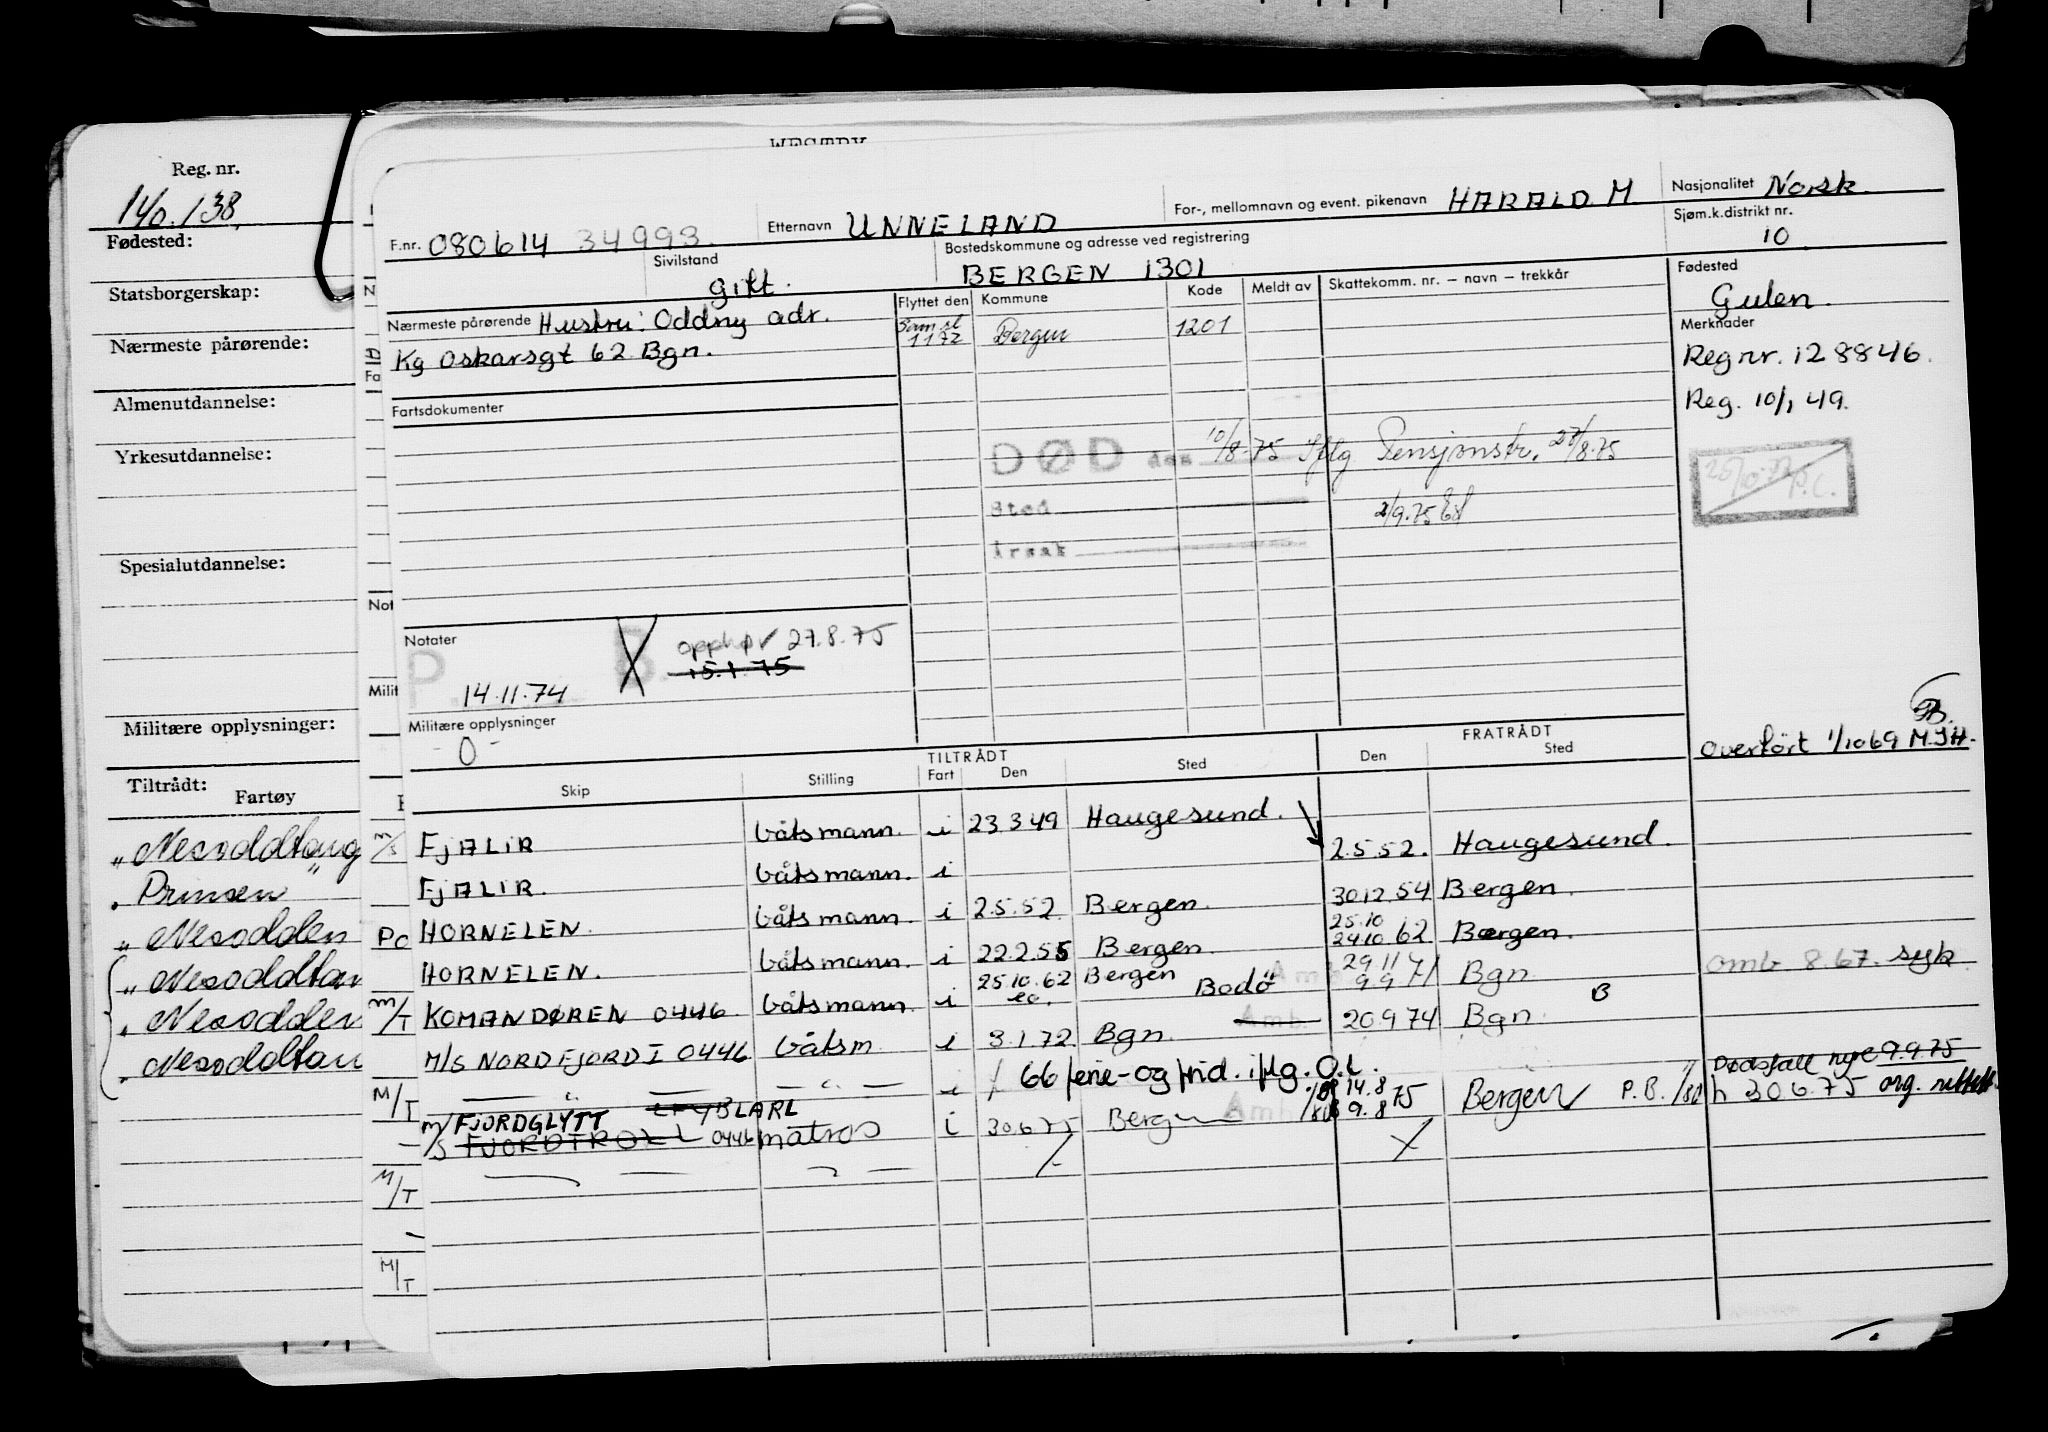 WESTBY
Reg. nr.
140.138
Fødested:
Statsborgerskap:
Nærmeste pårørende:
Almenutdannelse:
Yrkesutdannelse:
Spesialutdannelse:
Militære opplysninger:
Tiltrådt:
Fartøy
„ Nesoddtang
„ Prinsen
„ Nesodden
„ Nesoddtan
„ Nesodden
„ Nesoddtan
F.nr. 080614 34993
Etternavn UNNELAND
For-, mellomnavn og event. pikenavn HARALD M
Nasjonalitet Norsk
Sjøm.k.distrikt nr.
10
Sivilstand
gift.
Bostedskommune og adresse ved registrering
BERGEN 1301
Fødested
Gulen.
Nærmeste pårørende Hustru: Oddny adr.
Kg Oskarsgt 62 Bgn.
Flyttet den Kommune Kode Meldt av Skattekomm. nr. – navn – trekkår
Sam.sl 1 1 72 Bergen 1201
Merknader
Reg nr. 128846.
Reg. 10/1 49.
Fartsdokumenter
DØD den 10/8-75 Iflg Pensjonstr. 27/8.75
Sted
2/9.75
Årsak
P.C.
Notater
P. 14.11.74
B. opphør 27.8.75
15.1.75
Militære opplysninger
-0-
Overført 1/10 69 M.J.H.
TILTRÅDT FRATRÅDT
Skip Stilling Fart Den Sted Den Sted
m/s FJALIR båtsmann. i 23 3 49 Haugesund.
FJALIR. båtsmann. i 2.5.52. Haugesund.
HORNELEN. båtsmann. i 2.5.52. Bergen. 30 12 54 Bergen.
HORNELEN. båtsmann. i 22.2.55 Bergen 25.10 24 10 62 Bergen.
m/T KOMANDØREN 0446 båtsmann i 25.10.62 Bergen Bodø Amb 29 11 9 9 71 Bgn. omb 8.67. syk.
M/S NORDFJORD I 0446 båtsm. i 3.1.72 Bgn. Amb. 20.9 74 Bgn. B
M/T — " — i / 66 ferie- og frid. iflg. O.L.
m/s FJORDGLYTT LARL
FJORDTROLL 0446 matros i 30.6 75 Bergen Amb 14.8 9.8 75 Bergen P.B. Dødsfall nye 9.9.75
h 30 6.75 org. rettet
M/T
M/T